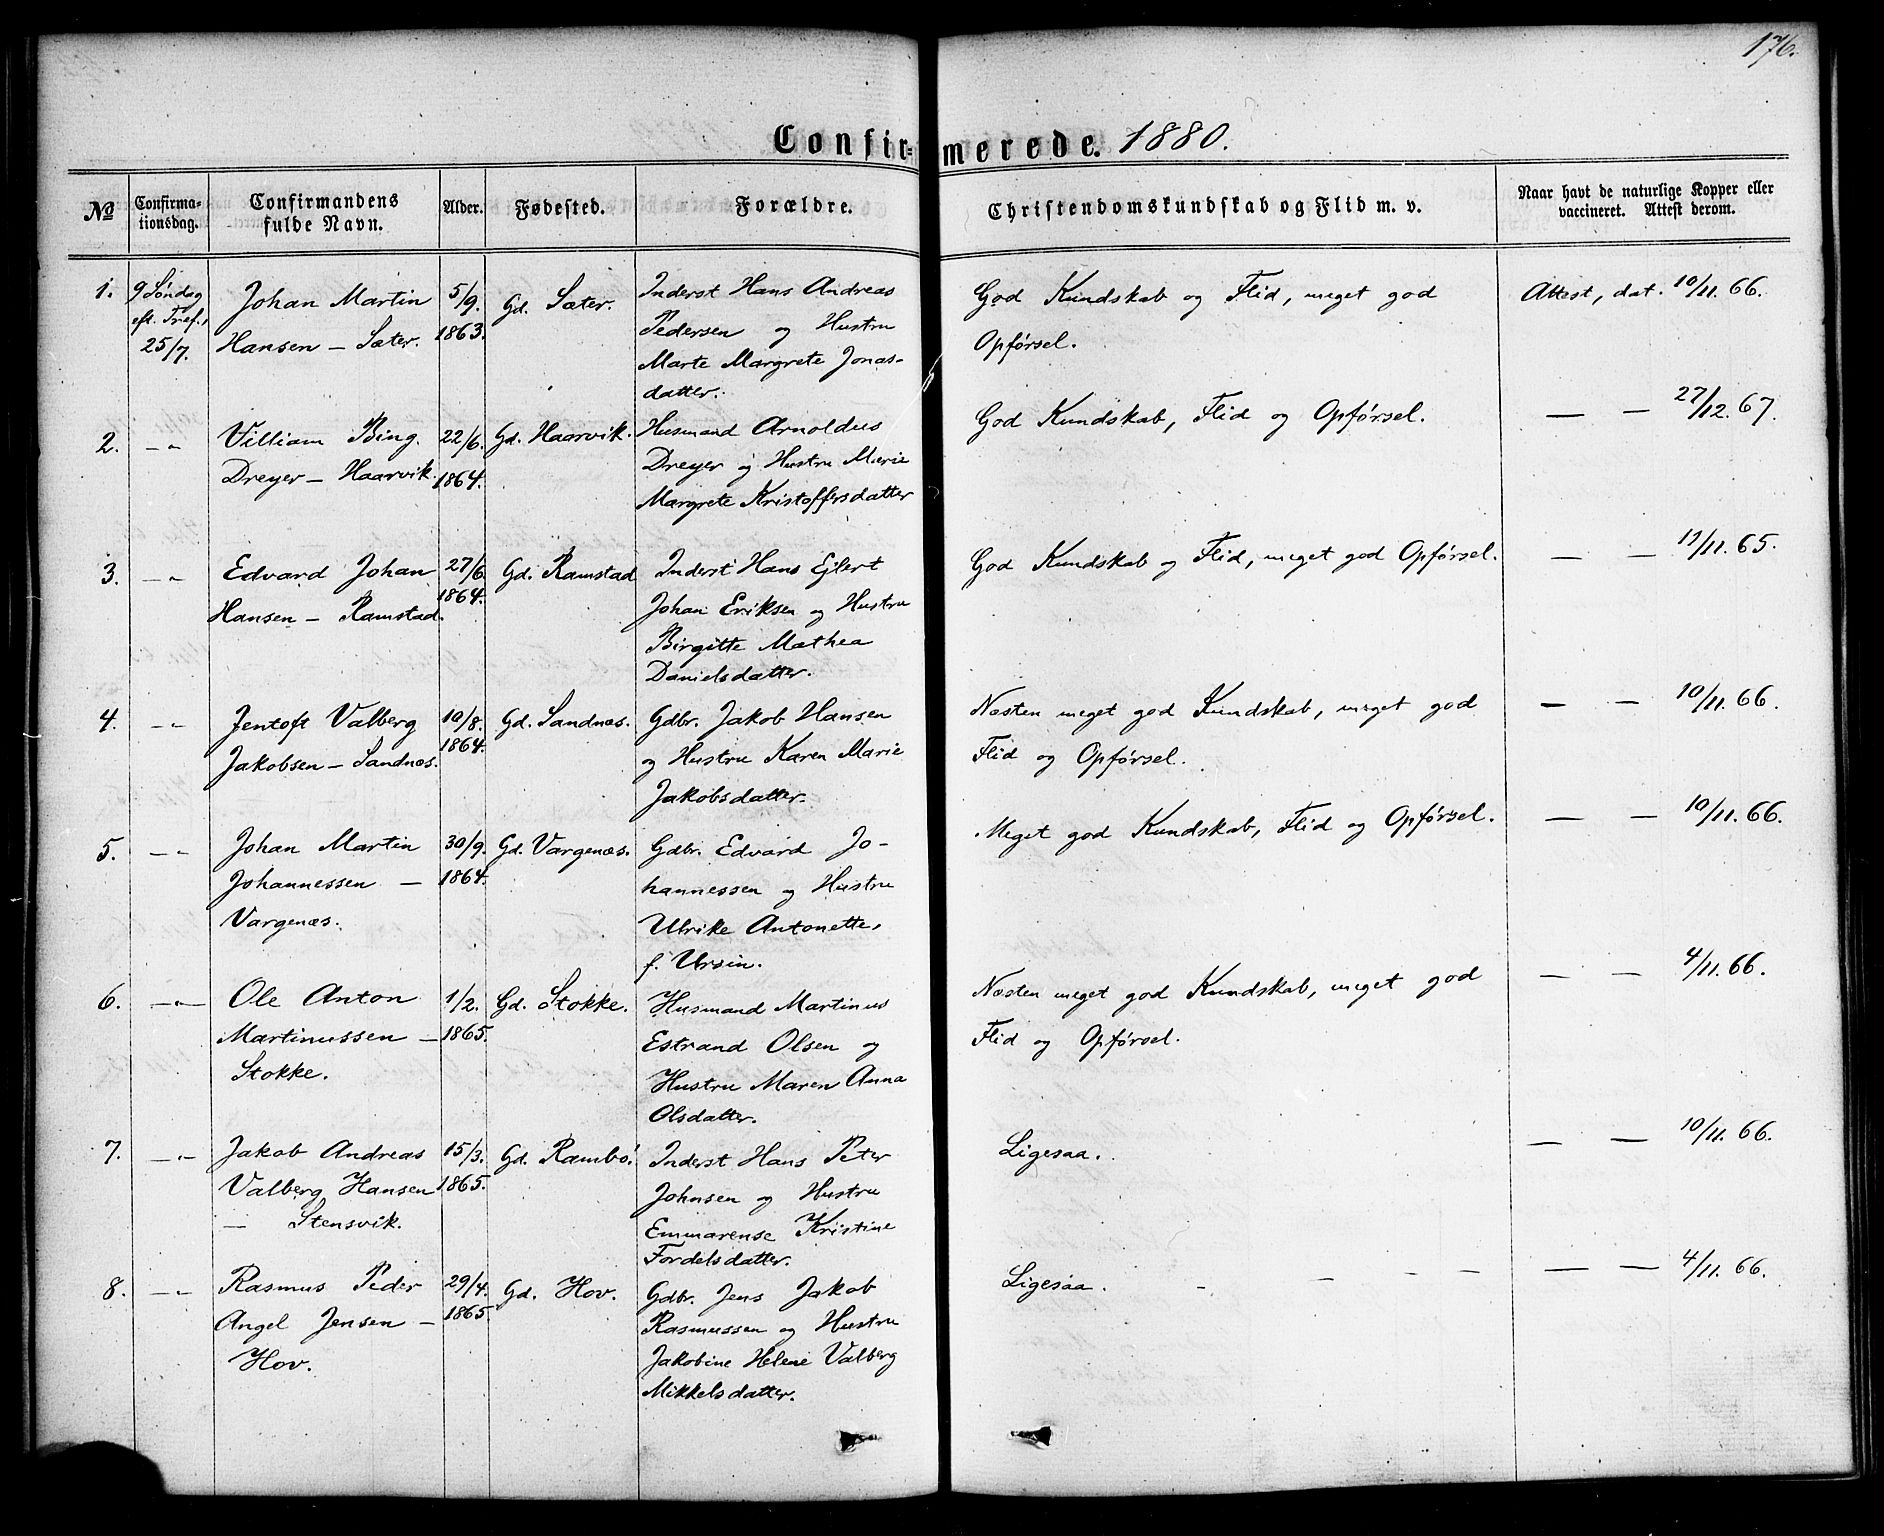 176.
Confirmerede. 1880.
№ Confirmationsdag. Confirmandens fulde Navn. Alder. Fødested. Forældre. Christendomskundskab og Flid m. v. Naar havt de naturlige Kopper eller vaccineret. Attest derom.
1. 9 Søndag Johan Martin 5/9. Gd. Sæter. Inderst Hans Andreas God Kundskab og Flid, meget god Attest, dat. 10/11. 66.
eft. Tref., Hansen – Sæter. 1863. Pedersen og Hustru Opførsel.
25/7. Marte Margrete Jonas-
datter.
2. – „ Villiam Bing. 22/6. Gd. Haarvik. Husmand Arnoldus God Kundskab, Flid og Opførsel. — – 27/12. 67.
Dreyer – Haarvik. 1864. Dreyer og Hustru Marie
Margrete Kristoffersdatter
3. – „ Edvard Johan 27/6. Gd. Ramstad Inderst Hans Ejlert God Kundskab og Flid, meget god Opførsel. — – 11/11. 65.
Hansen – Ramstad. 1864. Johan Eriksen og Hustru
Birgitte Mathea
Danielsdatter.
4. – „ Jentoft Valberg 10/8. Gd. Sandnæs. Gdbr. Jakob Hansen Næsten meget god Kundskab, meget god — – 10/11. 66.
Jakobsen – Sandnæs. 1864. og Hustru Karen Marie Flid og Opførsel.
Jakobsdatter.
5. – „ Johan Martin 30/9. Gd. Vargenæs. Gdbr. Edvard Jo- Meget god Kundskab, Flid og Opførsel. — – 10/11. 66.
Johannessen – 1864. hannessen og Hustru
Vargenæs. Ulrike Antonette,
f. Ursin.
6. – „ – Ole Anton 1/2. Gd. Stokke. Husmand Martinus Næsten meget god Kundskab, meget god — – 4/11. 66.
Martinussen – 1865. Estrand Olsen og Flid og Opførsel.
Stokke. Hustru Maren Anna
Olsdatter.
7. – „ Jakob Andreas 15/3. Gd. Rambø. Inderst Hans Peter Ligesaa. — – 10/11. 66.
Valberg Hansen 1865. Johnsen og Hustru
– Stensvik. Emmarense Kristine
Fordelsdatter.
8. – „ Rasmus Peder 29/4. Gd. Hov. Gdbr. Jens Jakob Ligesaa. - - - - — – 4/11. 66.
Angel Jensen – 1865 Rasmussen og Hustru
Hov. Jakobine Helene Valberg
Mikkelsdatter.